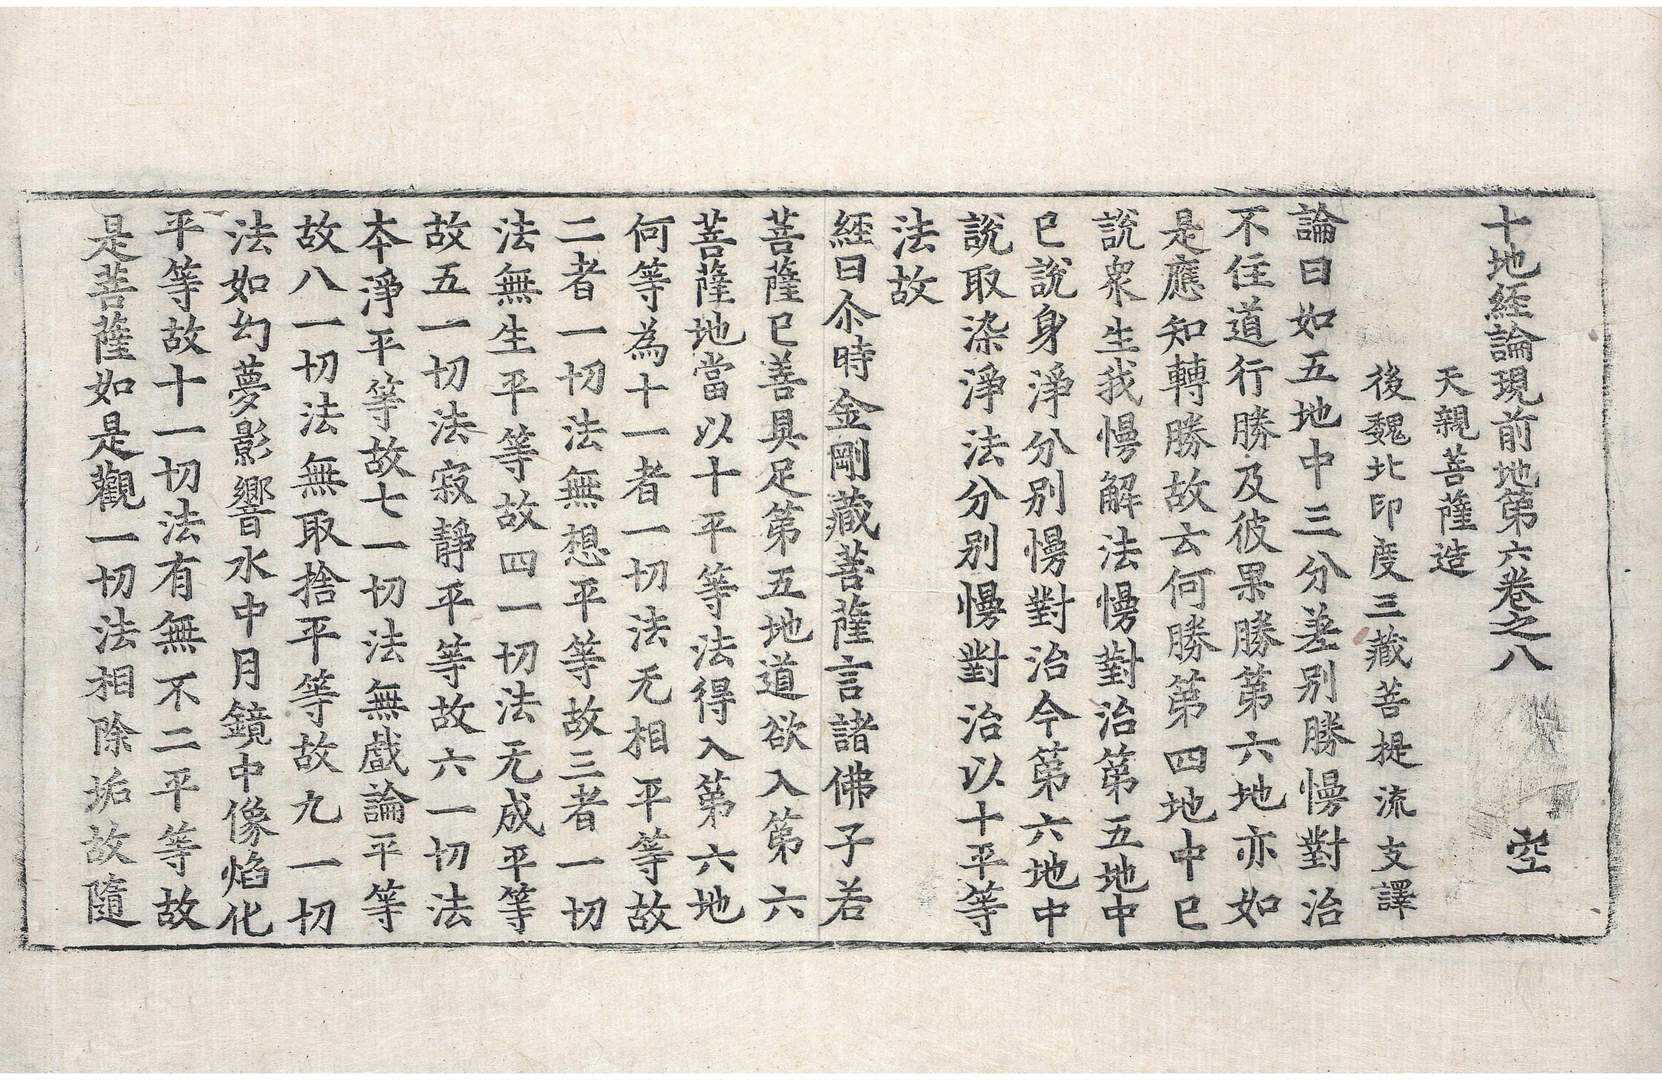 十地經論現前地第六卷之八 空
天親菩薩造
後魏北印度三藏菩提流支譯
論曰如五地中三分差別勝慢對治
不住道行勝及彼果勝第六地亦如
是應知轉勝故云何勝第四地中已
說衆生我慢解法慢對治第五地中
已說身淨分別慢對治今第六地中
說取染淨法分別慢對治以十平等
法故
經曰尒時金剛藏菩薩言諸佛子若
菩薩已善具足第五地道欲入第六
菩薩地當以十平等法得入第六地
何等為十一者一切法无相平等故
二者一切法無想平等故三者一切
法無生平等故四一切法无成平等
故五一切法寂靜平等故六一切法
本淨平等故七一切法無戲論平等
故八一切法無取捨平等故九一切
法如幻夢影響水中月鏡中像焰化
平等故十一切法有無不二平等故
是菩薩如是觀一切法相除垢故隨